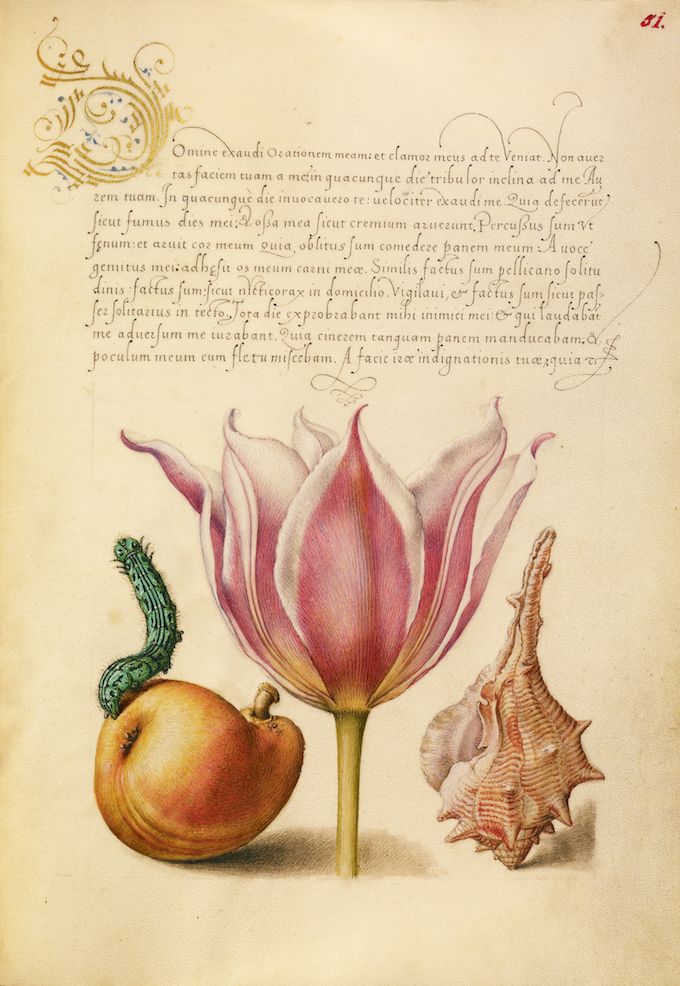 51.
Domine exaudi Orationem meam: et clamor meus ad te Veniat. Non auer
tas faciem tuam a me: in quacunque die tribulor inclina ad me Au
rem tuam. In quacunquè die inuocauero te: uelociter exaudi me. Quia defecerūt
sicut fumus dies mei: & oßa mea sicut cremium aruerunt. Percußus sum Vt
fęnum: et aruit cor meum quia, oblitus sum comedere panem meum. A uoce
gemitus mei: adhęsit os meum carni meæ. Similis factus sum pellicano solitu
dinis: factus sum: sicut nicticorax in domicilio. Vigilaui, & factus sum sicut pas-
ser solitarius in tecto. Tota die exprobrabant mihi inimici mei: & qui laudabāt
me aduersum me iurabant. Quia cinerem tanquam panem manducabam: &
poculum meum cum fletu miscebam. A facie iræ indignationis tuæ, quia